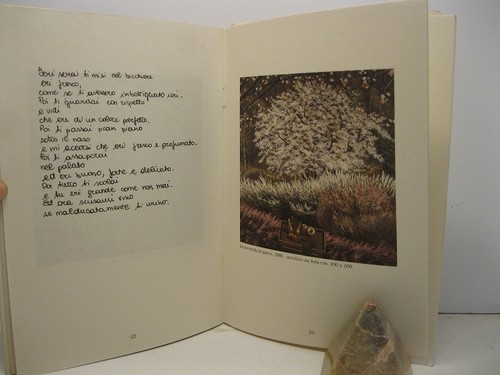 Ieri sera ti misi nel bicchiere
eri fresco,
come se ti avessero imbottigliato ieri.
Poi ti guardai con rispetto
e vidi
che eri di un colore perfetto,
Poi ti passai pian piano
sotto il naso
e mi accorsi che eri fresco e profumato.
Poi ti assaporai
nel palato
ed eri buono, forte e delicato.
Poi tutto ti scolai
e tu eri grande come non mai.
Ed ora scusami vino
se maldestramente ti urino.
22
1986
cm. 100 x 100